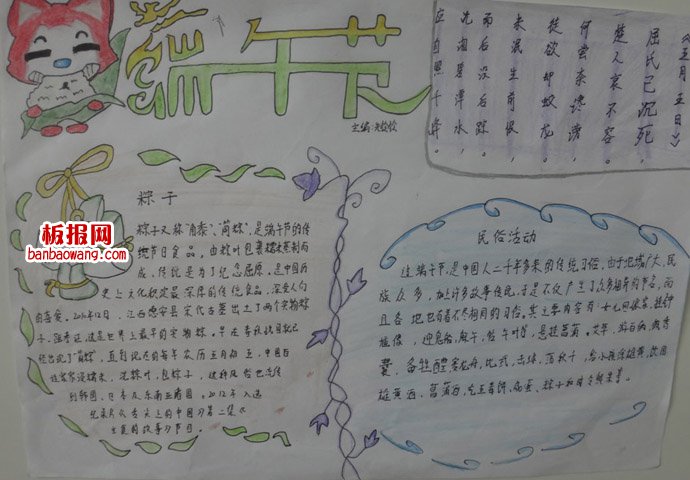 端午节
主编:
《五月五日》
屈氏已沉死,
楚人哀不容。
何尝奈谗谤,
徒欲却蛟龙。
未泯生前恨,
而后没后踪。
沈湘碧潭水,
应自照千峰。
粽子
粽子又称"角黍"、"筒粽",是端午节的传
统节日食品,由粽叶包裹糯米蒸制而
成,传说是为了纪念屈原,是中国历
史上文化积淀最深厚的传统食品,深受人们
的喜爱。
江西德安县宋代古墓出土了两个实物粽
子,
这是世界上最早的实物粽。早在春秋
已出现了"筒粽",直到现在的每年农历五月初五,中国百
姓家家浸糯米、洗粽叶、包粽子,
到韩国、日本及东南亚诸国。2012年入选
纪录片《舌尖上的中国》第二集《
主食的故事》节目。
板报网
banbaowang.com
民俗活动
过端午节,是中国人二千年多来的传统习俗,由于地域广大,民
族众多,加上许多故事传说,于是不仅产生了众多相异的节名,而
且各地也有着不尽相同的习俗。其主要内容有:女儿回娘家,挂钟
馗像,迎鬼船、躲午、帖午叶符,悬挂菖蒲、艾草,游百病,佩香
囊,备牲醴,赛龙舟,比武,击球,荡秋千,给小孩涂雄黄,饮用
雄黄酒、菖蒲酒,吃五毒饼、咸蛋、粽子和时令鲜果等。